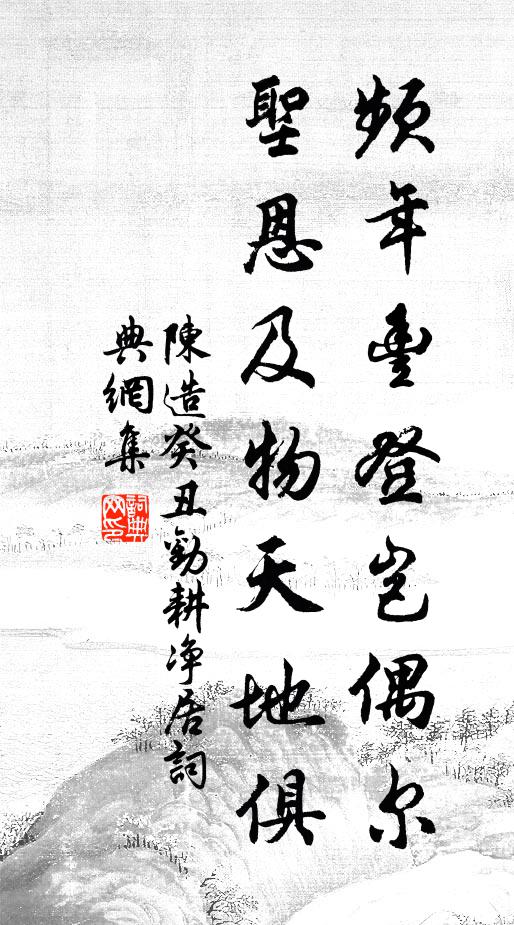 頻年豊登岂偶尔
聖恩及物天地俱
陳造癸丑勸耕净居詞
典網集
詞典
网印